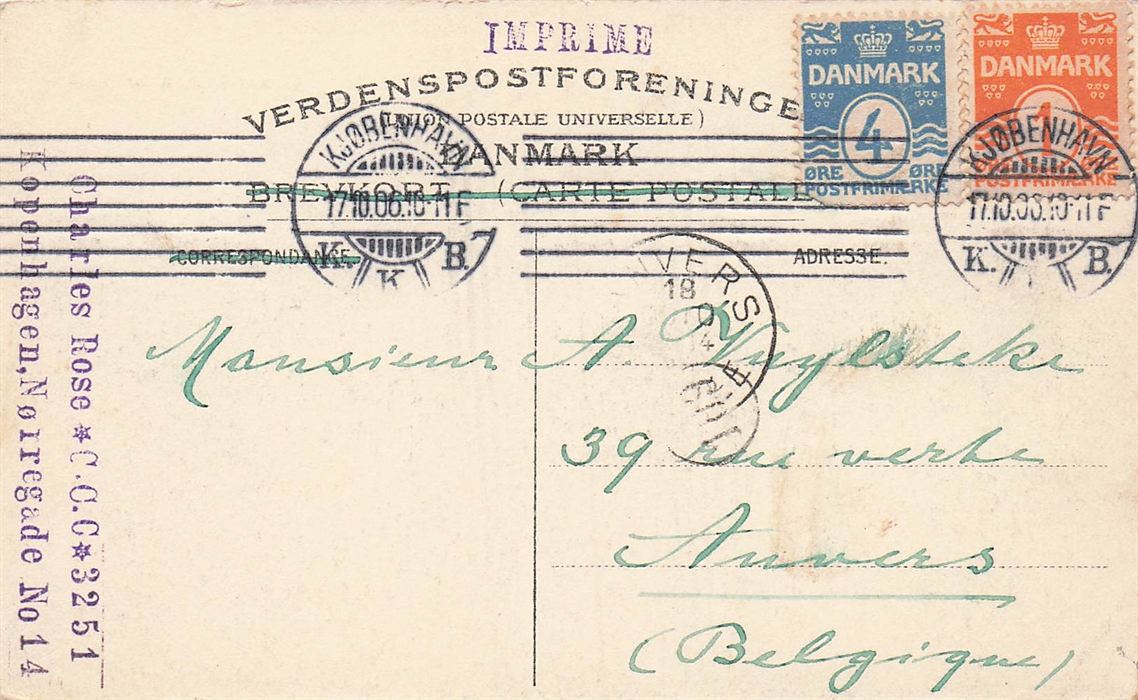 IMPRIME
VERDENSPOSTFORENINGE
(UNION POSTALE UNIVERSELLE)
DANMARK
BREVKORT (CARTE POSTALE
CORRESPONDANCE.
ADRESSE.
DANMARK
4
ØRE ØRE
POSTFRIMÆRKE
DANMARK
1
POSTFRIMÆRKE
KJØBENHAVN
17.10.06.10-11F
K. K B.
KJØBENHAVN
17.10.06.10-11F
K. B.
VERS
18
Charles Rose ★ C.C ★ 3251
Kopenhagen, Nørregade No 14
Monsieur A. Vuylsteke
39 rue verte
Anvers
(Belgique)